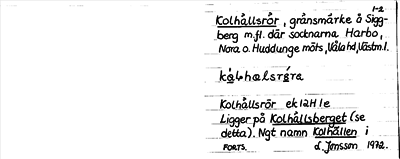 1-2
Kolhållsrör, gränsmärke å Sigg-
berg m.fl. där socknarna Harbo,
Nora o. Huddunge möts, Våla hd, Västm.l.
Kolhållsrör ek 12H 1e
Ligger på Kolhållsberget (se
detta). Ngt namn Kolhållen i
FORTS. d. Jonsson 1972.